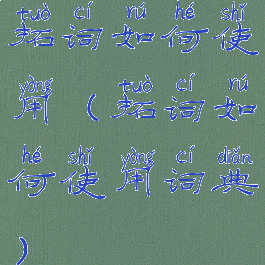 tuò cí rú hé shǐ
拓词如何使
yòng tuò cí rú
用(拓词如
hé shǐ yòng cí diǎn
何使用词典
)